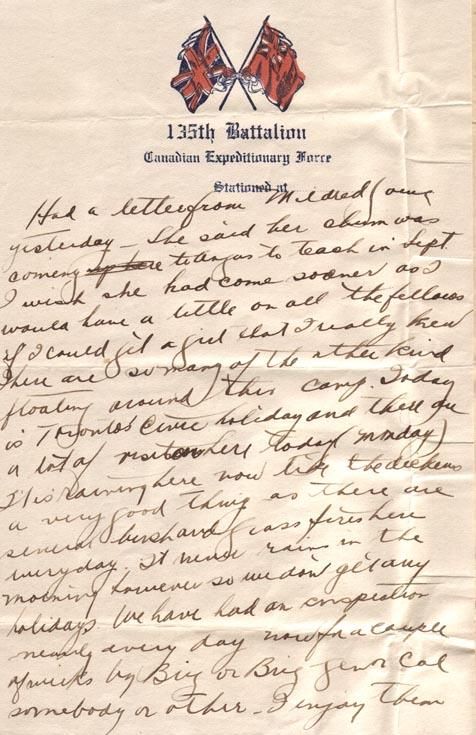 135th Battalion
Canadian Expeditionary Force
Stationed at
Had a letter from Mildred
yesterday - She said her chum was
coming to Angus to teach in Sept
I wish she had come sooner as I
would have a little on all the fellows
if I could get a girl that I really knew
There are so many of the other kind
floating around this camp. Today
is Toronto's Civic holiday and there are
a lot of visitors here today (Monday)
It is raining here now like the dickens
a very good thing as there are
several bush and grass fires here
everyday. It never rains in the
morning however so we don't get any
holidays. We have had an inspection
nearly every day now for a couple
of weeks by Brig or Brig Gen or Col
somebody or other - I enjoy them